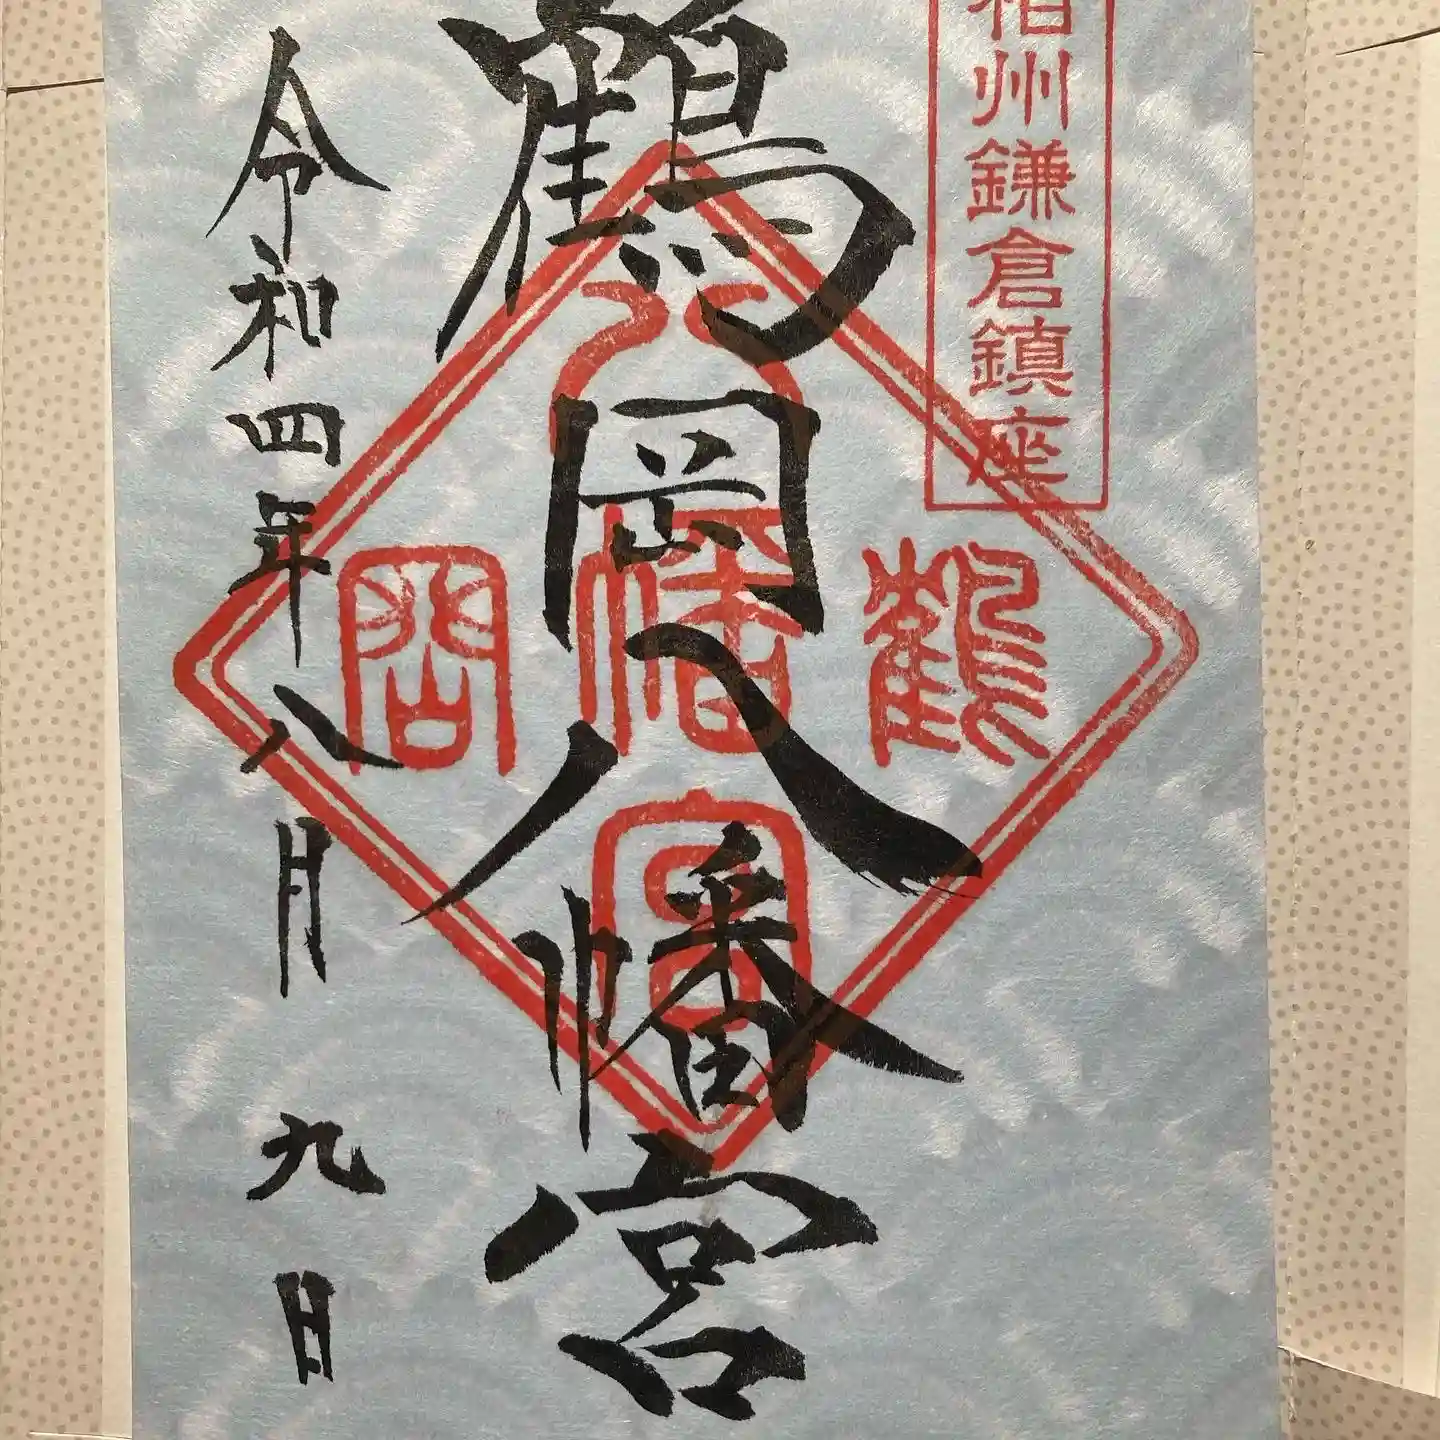 相州鎌倉鎮座
鶴岡八幡宮
八幡宮
鶴
岡
令和四年八月九日